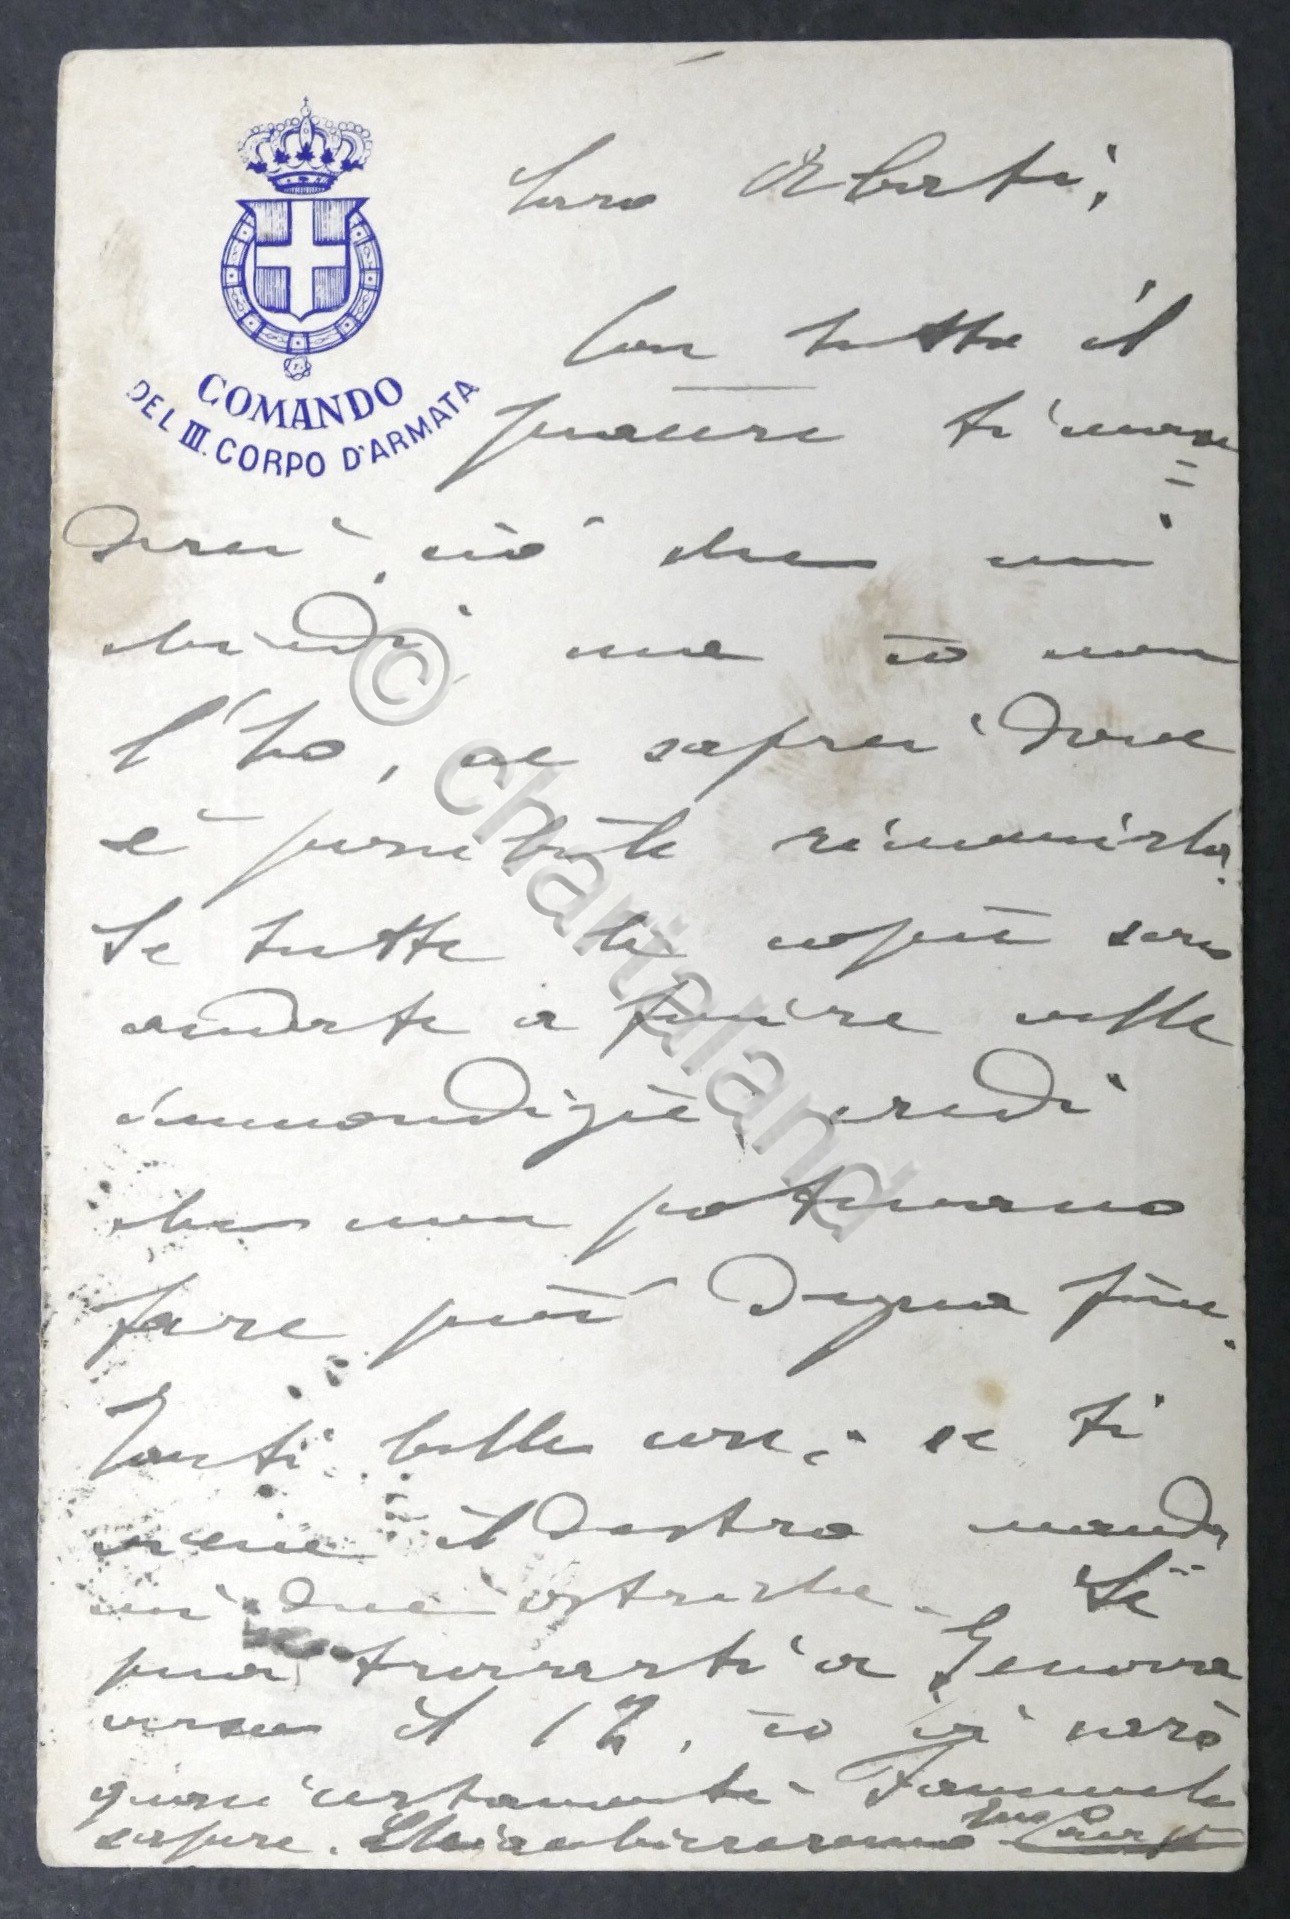 COMANDO
DEL III. CORPO D'ARMATA
Caro Alberti,
Con tutto il
piacere ti man=
derei, ciò che mi
chiedi, ma io non
l'ho, ne saprei dove
è possibile rinvenirlo.
Se tutte le copie sono
andate a finire alle
immondizie, credi
che non potevano
fare più degna fine.
Tanti belle cose; se ti
viene il destro manda
mi due ostriche. Se
puoi trovarti a Genova
verso il 17, io vi sarò
quasi certamente. Fammelo
sapere. Chiacchiereremo
© chartaland